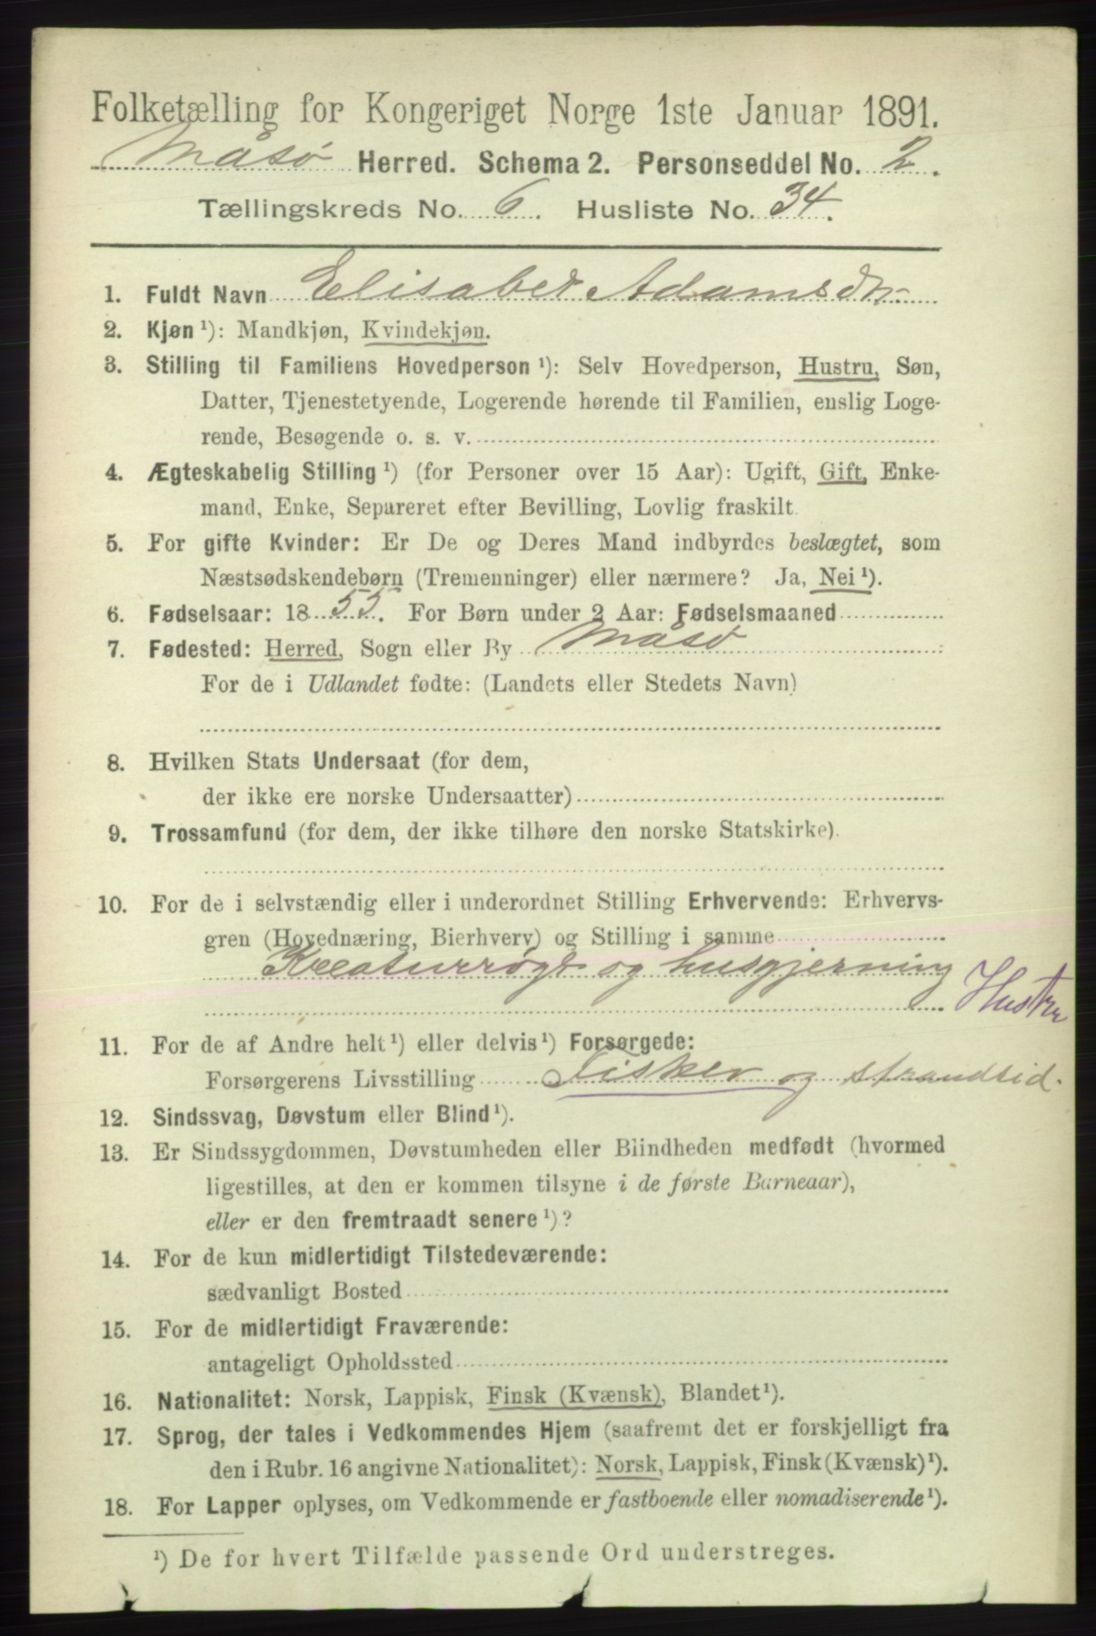 Folketælling for Kongeriget Norge 1ste Januar 1891.
Måsø Herred. Schema 2. Personseddel No. 2.
Tællingskreds No. 6. Husliste No. 34.
1. Fuldt Navn Elisabet Adamsdtr.
2. Kjøn ¹): Mandkjøn, Kvindekjøn.
3. Stilling til Familiens Hovedperson ¹): Selv Hovedperson, Hustru, Søn,
Datter, Tjenestetyende, Logerende hørende til Familien, enslig Loge-
rende, Besøgende o. s. v.
4. Ægteskabelig Stilling ¹) (for Personer over 15 Aar): Ugift, Gift, Enke-
mand, Enke, Separeret efter Bevilling, Lovlig fraskilt.
5. For gifte Kvinder: Er De og Deres Mand indbyrdes beslægtet, som
Næstsødskendebørn (Tremenninger) eller nærmere? Ja, Nei ¹).
6. Fødselsaar: 18 55. For Børn under 2 Aar: Fødselsmaaned
7. Fødested: Herred, Sogn eller By Måsø
For de i Udlandet fødte: (Landets eller Stedets Navn)
8. Hvilken Stats Undersaat (for dem,
der ikke ere norske Undersaatter)
9. Trossamfund (for dem, der ikke tilhøre den norske Statskirke).
10. For de i selvstændig eller i underordnet Stilling Erhvervende: Erhvervs-
gren (Hovednæring, Bierhverv) og Stilling i samme
Kreaturrøgt og husgjerning
Hustru
11. For de af Andre helt ¹) eller delvis ¹) Forsørgede:
Forsørgerens Livsstilling Fisker og strandsid.
12. Sindssvag, Døvstum eller Blind ¹).
13. Er Sindssygdommen, Døvstumheden eller Blindheden medfødt (hvormed
ligestilles, at den er kommen tilsyne i de første Barneaar),
eller er den fremtraadt senere ¹)?
14. For de kun midlertidigt Tilstedeværende:
sædvanligt Bosted
15. For de midlertidigt Fraværende:
antageligt Opholdssted
16. Nationalitet: Norsk, Lappisk, Finsk (Kvænsk), Blandet ¹).
17. Sprog, der tales i Vedkommendes Hjem (saafremt det er forskjelligt fra
den i Rubr. 16 angivne Nationalitet): Norsk, Lappisk, Finsk (Kvænsk) ¹).
18. For Lapper oplyses, om Vedkommende er fastboende eller nomadiserende ¹).
¹) De for hvert Tilfælde passende Ord understreges.